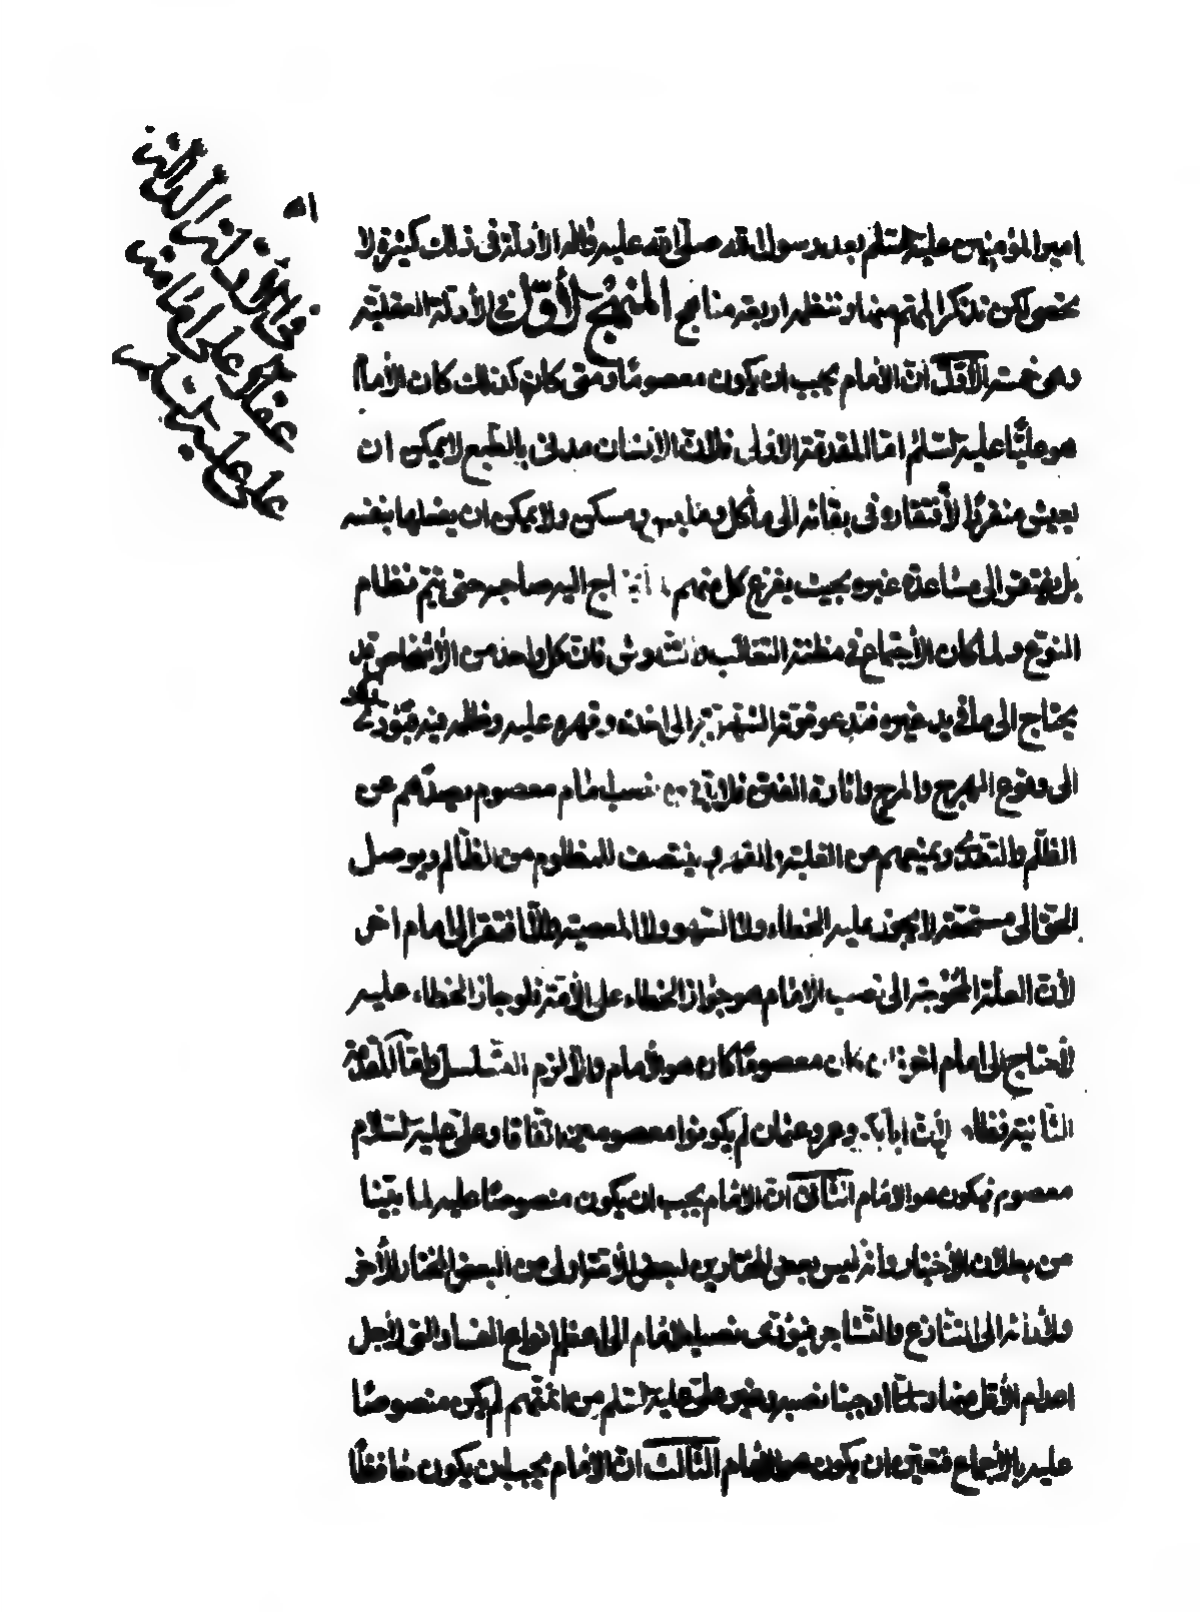 امير المؤمنين عليه السلم بعد رسول الله صلى الله عليه واله الادلة فى ذلك كثيرة لا
تحصى لكن نذكر المهم منها وننظم اربعة مناهج المنهج الأوّل فى الأدلة العقلية
وهى خمسة الأوّل انّ الأمام يجب ان يكون معصومًا ومتى كان كذلك كان الأمام
هو عليًّا عليه السلم امّا المقدمة الاولى فلانّ الأنسان مدنى بالطّبع لا يمكن ان
يعيش منفردًا لأفتقاره فى بقائه الى مأكل وملبس ومسكن ولا يمكن ان يفعلها بنفسه
بل يفتقر الى مساعدة غيره بحيث يفزع كل منهم اج اليه صاحبه حتى يتم نظام
النوع ولما كان الأجتماع فى مظنة التغالب والتناوش فانّ كل واحد من الأشخاص قد
يحتاج الى ما فى يد غيره فتدعو قوته الشهوية الى اخذه وقهره عليه وظلمه فيه فيؤدى ذلك
الى وقوع الهرج والمرج واثارة الفتن فلا بد من نصب امام معصوم يصدّهم عن
الظلم والتعدى ويمنعهم عن الغلبة والقهر و ينتصف للمظلوم من الظالم ويوصل
الحق الى مستحقه لا يجوز عليه الخطاء ولا السهو ولا المعصية والّا افتقر الى امام اخر
لأنّ العلّة المحوجة الى نصب الامام هو جواز الخطاء على الأمّة فلو جاز الخطاء عليه
لأحتاج الى امام اخر ان كان معصومًا كان هو الأمام والّا لزم التسلسل وامّا المقدّمة
الثانية فظاهر لأنّ ابا بكر وعمر وعثمان لم يكونوا معصومين اتّفاقا وعلىّ عليه السّلام
معصوم فيكون هو الامام الثّانى انّ الامام يجب ان يكون منصوصًا عليه لما بيّنا
من بطلان الأختيار وانه ليس بعض المختارين لبعض الأمّة اولى من البعض المختار لأخر
ولأدائه الى التنازع والتّشاجر فيؤدى نصب الامام الى اعظم انواع الفساد التى لأجل
اعدام الأقل منها اوجبنا نصبه وغير علىّ عليه السّلم من ائمّتهم لم يكن منصوصًا
عليه بالأجماع فتعيّن ان يكون هو الأمام الثالث انّ الامام يجب ان يكون حافظًا
فى الأدلة الدالّة
عقلًا على امامة
على عليه